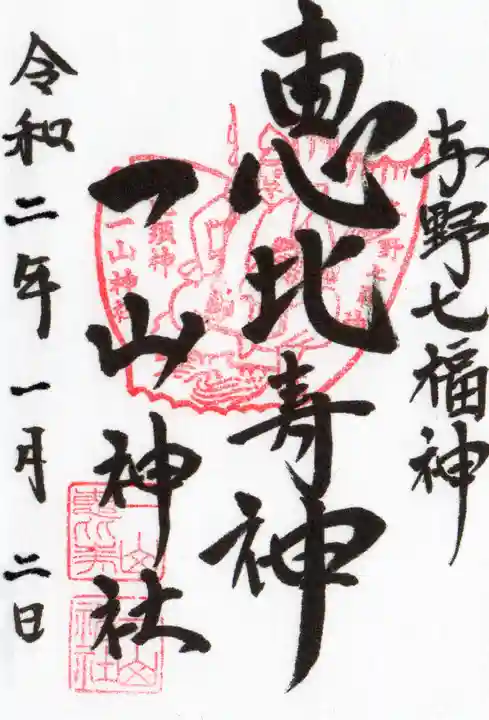 与野七福神
恵比寿神
一山神社
令和二年一月二日
一山神社